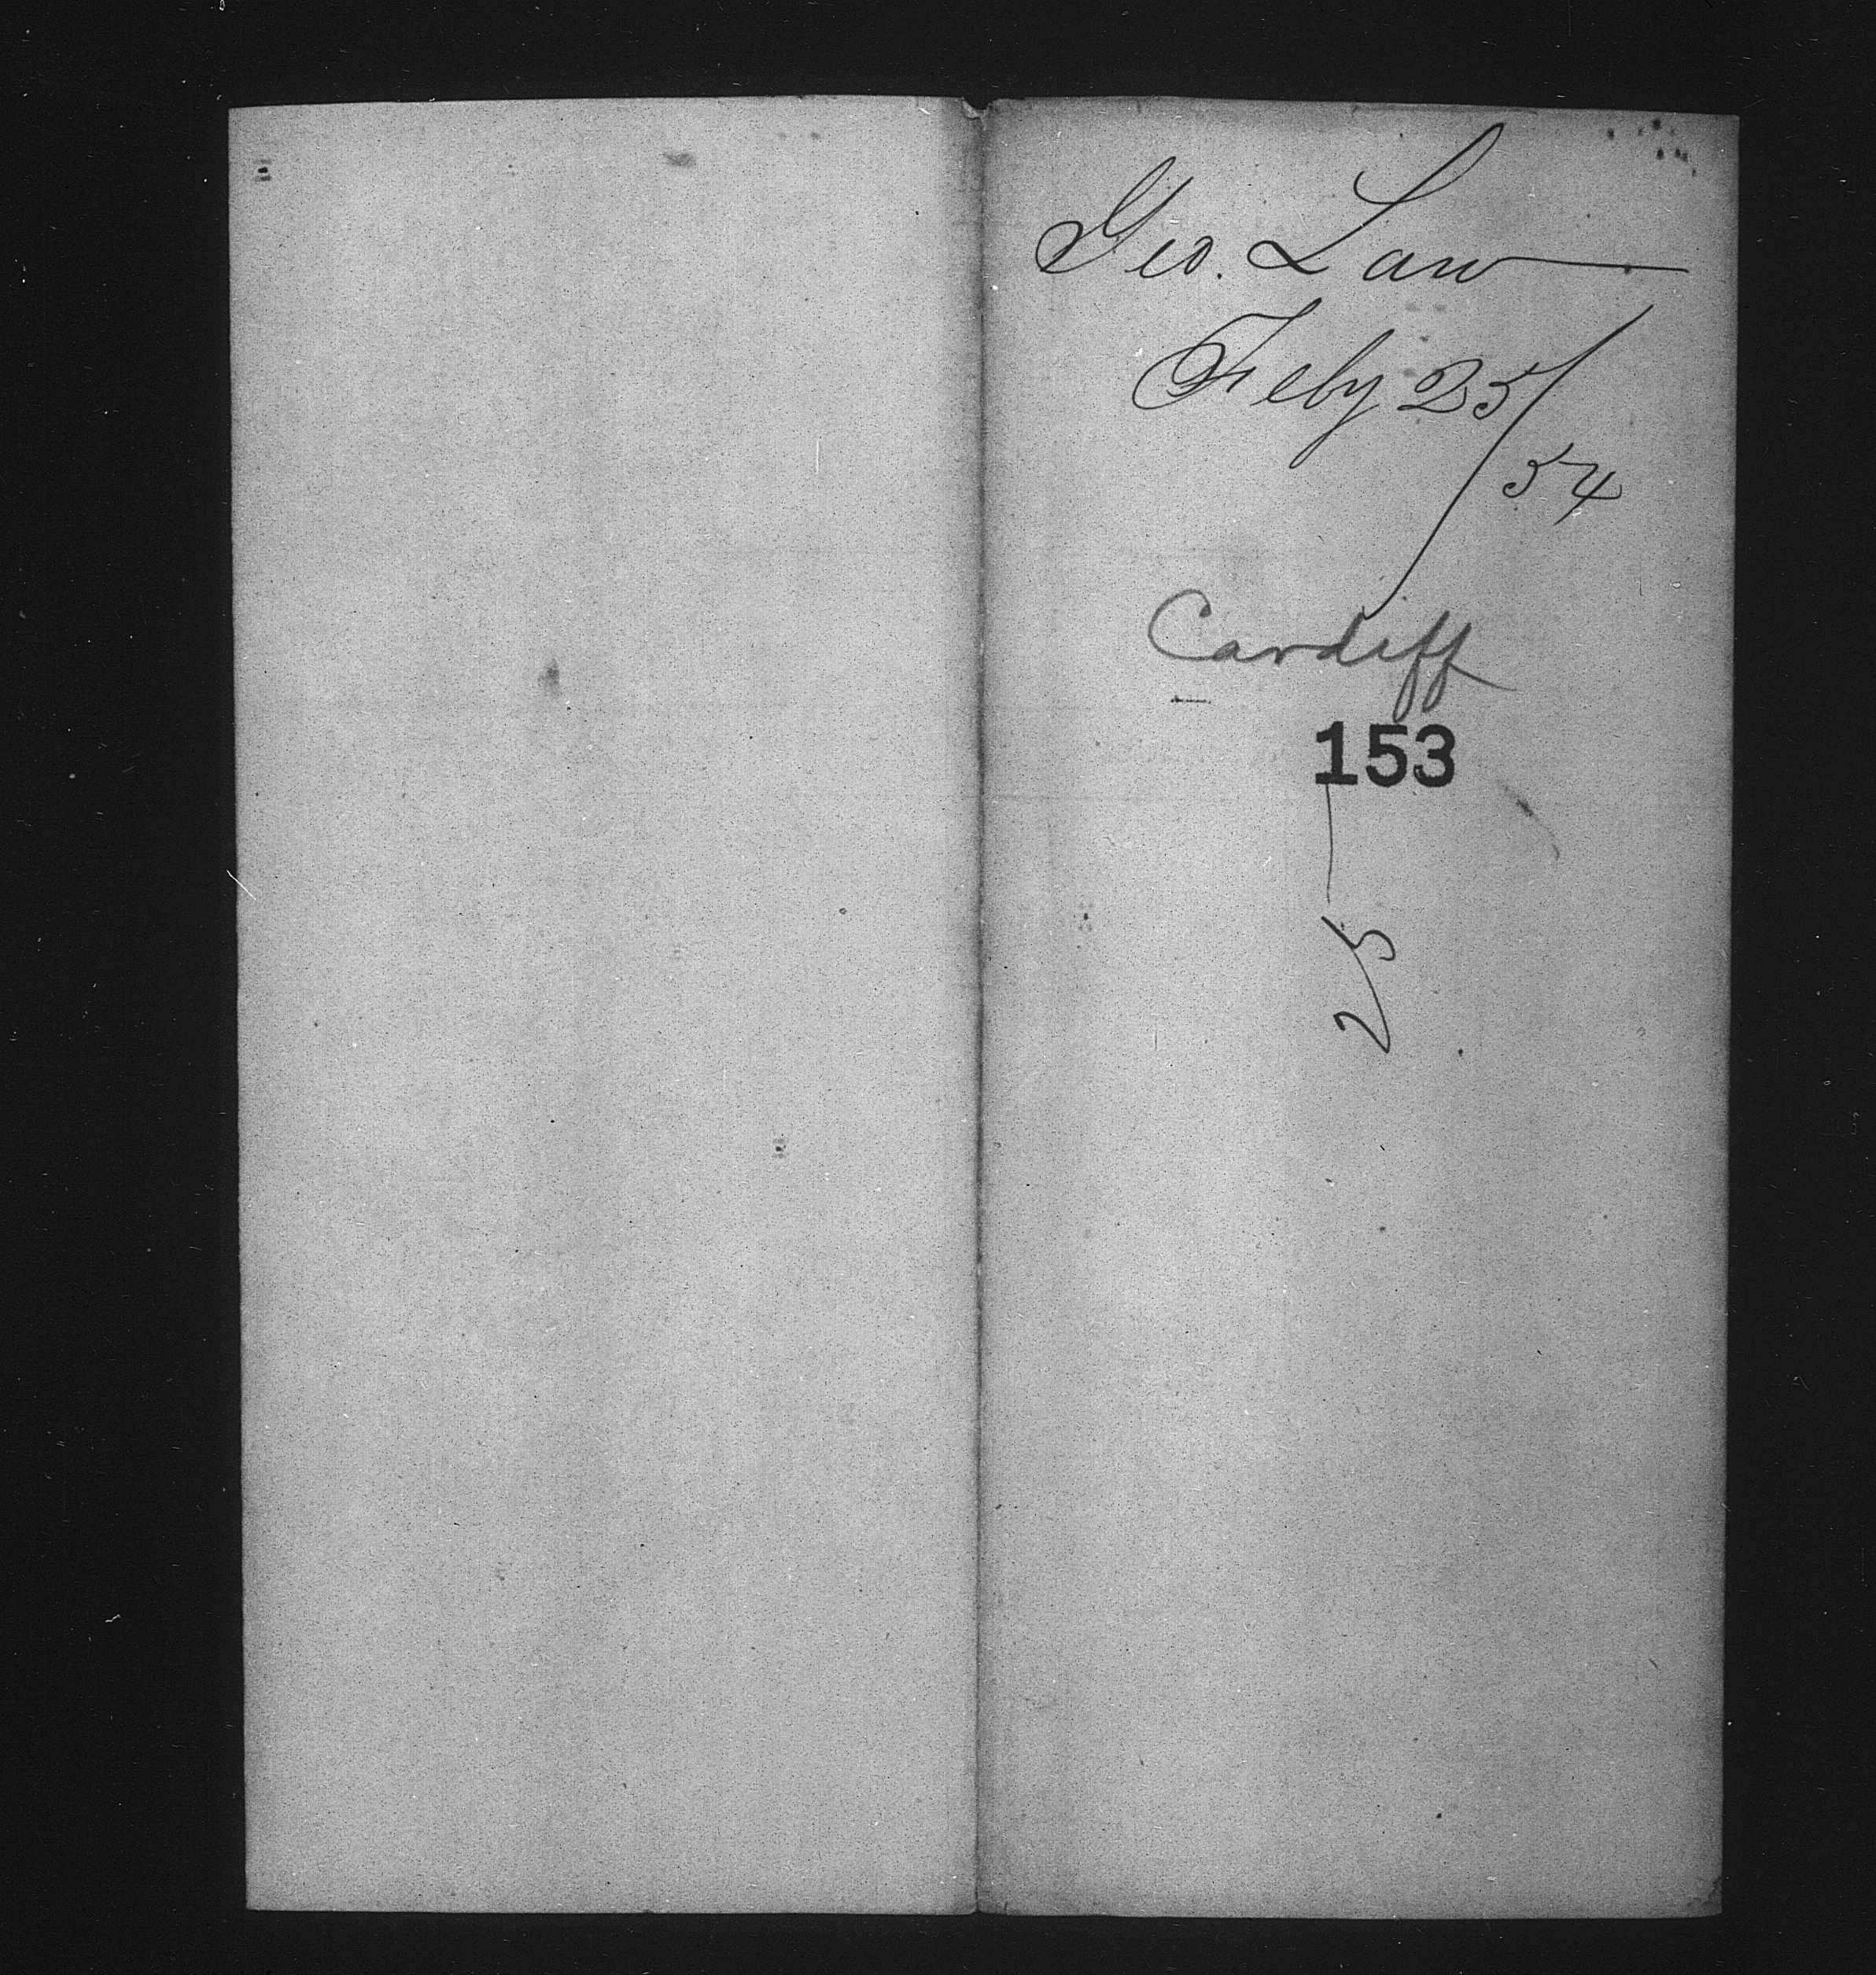 Geo. Law
Feby 25/
54
Cardiff
153
25